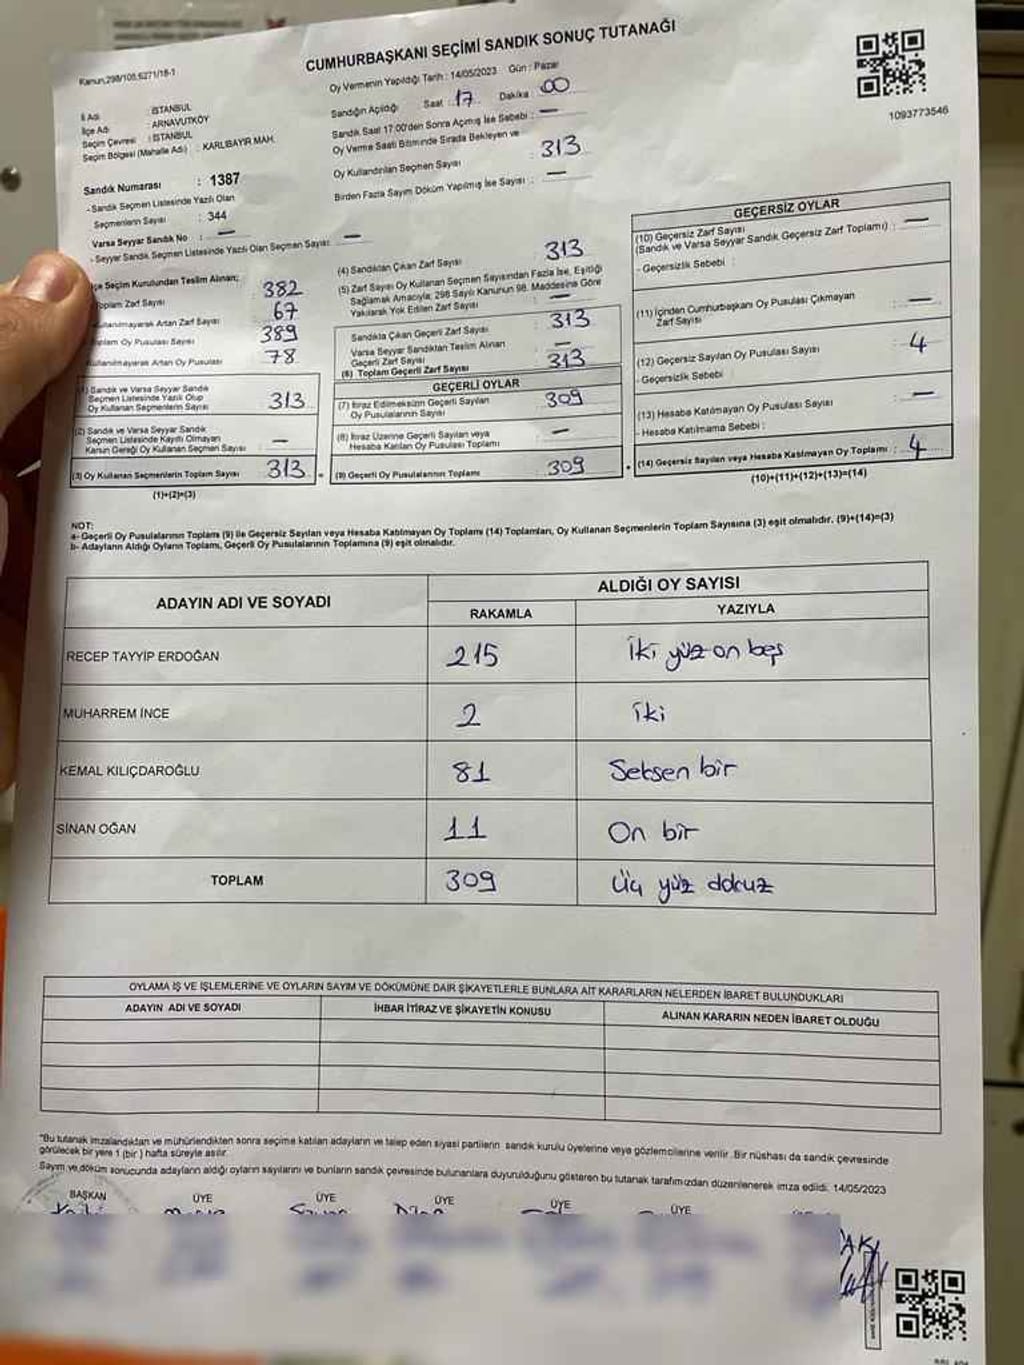 CUMHURBAŞKANI SEÇİMİ SANDIK SONUÇ TUTANAĞI
Kanun,298/108,6271/18-1
Oy Vermenin Yapıldığı Tarih : 14/05/2023 Gün : Pazar
1093773546
İl Adı : İSTANBUL
İlçe Adı : ARNAVUTKÖY
Seçim Çevresi : İSTANBUL
Seçim Bölgesi (Mahalle Adı) : KARLIBAYIR MAH.
Sandığın Açıldığı Saat : 17 Dakika : 00
Sandık Saat 17:00'den Sonra Açılmış İse Sebebi : —
Oy Verme Saati Bitiminde Sırada Bekleyen ve
Oy Kullandırılan Seçmen Sayısı : 313
Birden Fazla Sayım Döküm Yapılmış İse Sayısı : —
Sandık Numarası : 1387
- Sandık Seçmen Listesinde Yazılı Olan
Seçmenlerin Sayısı : 344
Varsa Seyyar Sandık No : —
- Seyyar Sandık Seçmen Listesinde Yazılı Olan Seçmen Sayısı : —
çe Seçim Kurulundan Teslim Alınan;
oplam Zarf Sayısı 382
ullanılmayarak Artan Zarf Sayısı 67
oplam Oy Pusulası Sayısı 389
ullanılmayarak Artan Oy Pusulası 78
(1) Sandık ve Varsa Seyyar Sandık
Seçmen Listesinde Yazılı Olup
Oy Kullanan Seçmenlerin Sayısı 313
(2) Sandık ve Varsa Seyyar Sandık
Seçmen Listesinde Kayıtlı Olmayan
Kanun Gereği Oy Kullanan Seçmen Sayısı —
(3) Oy Kullanan Seçmenlerin Toplam Sayısı 313 =
(1)+(2)=(3)
(4) Sandıktan Çıkan Zarf Sayısı : 313
(5) Zarf Sayısı Oy Kullanan Seçmen Sayısından Fazla İse, Eşitliği
Sağlamak Amacıyla; 298 Sayılı Kanunun 98. Maddesine Göre
Yakılarak Yok Edilen Zarf Sayısı : —
Sandıkta Çıkan Geçerli Zarf Sayısı : 313
Varsa Seyyar Sandıktan Teslim Alınan
Geçerli Zarf Sayısı : —
(6) Toplam Geçerli Zarf Sayısı 313
GEÇERLİ OYLAR
(7) İtiraz Edilmeksizin Geçerli Sayılan
Oy Pusulalarının Sayısı 309
(8) İtiraz Üzerine Geçerli Sayılan veya
Hesaba Katılan Oy Pusulası Toplamı —
(9) Geçerli Oy Pusulalarının Toplamı 309
GEÇERSİZ OYLAR
(10) Geçersiz Zarf Sayısı
(Sandık ve Varsa Seyyar Sandık Geçersiz Zarf Toplamı) : —
- Geçersizlik Sebebi :
(11) İçinden Cumhurbaşkanı Oy Pusulası Çıkmayan
Zarf Sayısı : —
(12) Geçersiz Sayılan Oy Pusulası Sayısı : 4
- Geçersizlik Sebebi
(13) Hesaba Katılmayan Oy Pusulası Sayısı : —
- Hesaba Katılmama Sebebi :
(14) Geçersiz Sayılan veya Hesaba Katılmayan Oy Toplamı : 4
(10)+(11)+(12)+(13)=(14)
NOT:
a- Geçerli Oy Pusulalarının Toplamı (9) ile Geçersiz Sayılan veya Hesaba Katılmayan Oy Toplamı (14) Toplamları, Oy Kullanan Seçmenlerin Toplam Sayısına (3) eşit olmalıdır. (9)+(14)=(3)
b- Adayların Aldığı Oyların Toplamı, Geçerli Oy Pusulalarının Toplamına (9) eşit olmalıdır.
ADAYIN ADI VE SOYADI ALDIĞI OY SAYISI
RAKAMLA YAZIYLA
RECEP TAYYİP ERDOĞAN 215 İki yüz on beş
MUHARREM İNCE 2 iki
KEMAL KILIÇDAROĞLU 81 Seksen bir
SİNAN OĞAN 11 On bir
TOPLAM 309 Üç yüz dokuz
OYLAMA İŞ VE İŞLEMLERİNE VE OYLARIN SAYIM VE DÖKÜMÜNE DAİR ŞİKAYETLERLE BUNLARA AİT KARARLARIN NELERDEN İBARET BULUNDUKLARI
ADAYIN ADI VE SOYADI İHBAR İTİRAZ VE ŞİKAYETİN KONUSU ALINAN KARARIN NEDEN İBARET OLDUĞU
"Bu tutanak imzalandıktan ve mühürlendikten sonra seçime katılan adayların ve talep eden siyasi partilerin sandık kurulu üyelerine veya gözlemcilerine verilir. Bir nüshası da sandık çevresinde
görülecek bir yere 1 (bir ) hafta süreyle asılır.
Sayım ve döküm sonucunda adayların aldığı oyların sayılarını ve bunların sandık çevresinde bulunanlara duyurulduğunu gösteren bu tutanak tarafımızdan düzenlenerek imza edildi. 14/05/2023
BAŞKAN ÜYE ÜYE ÜYE ÜYE ÜYE